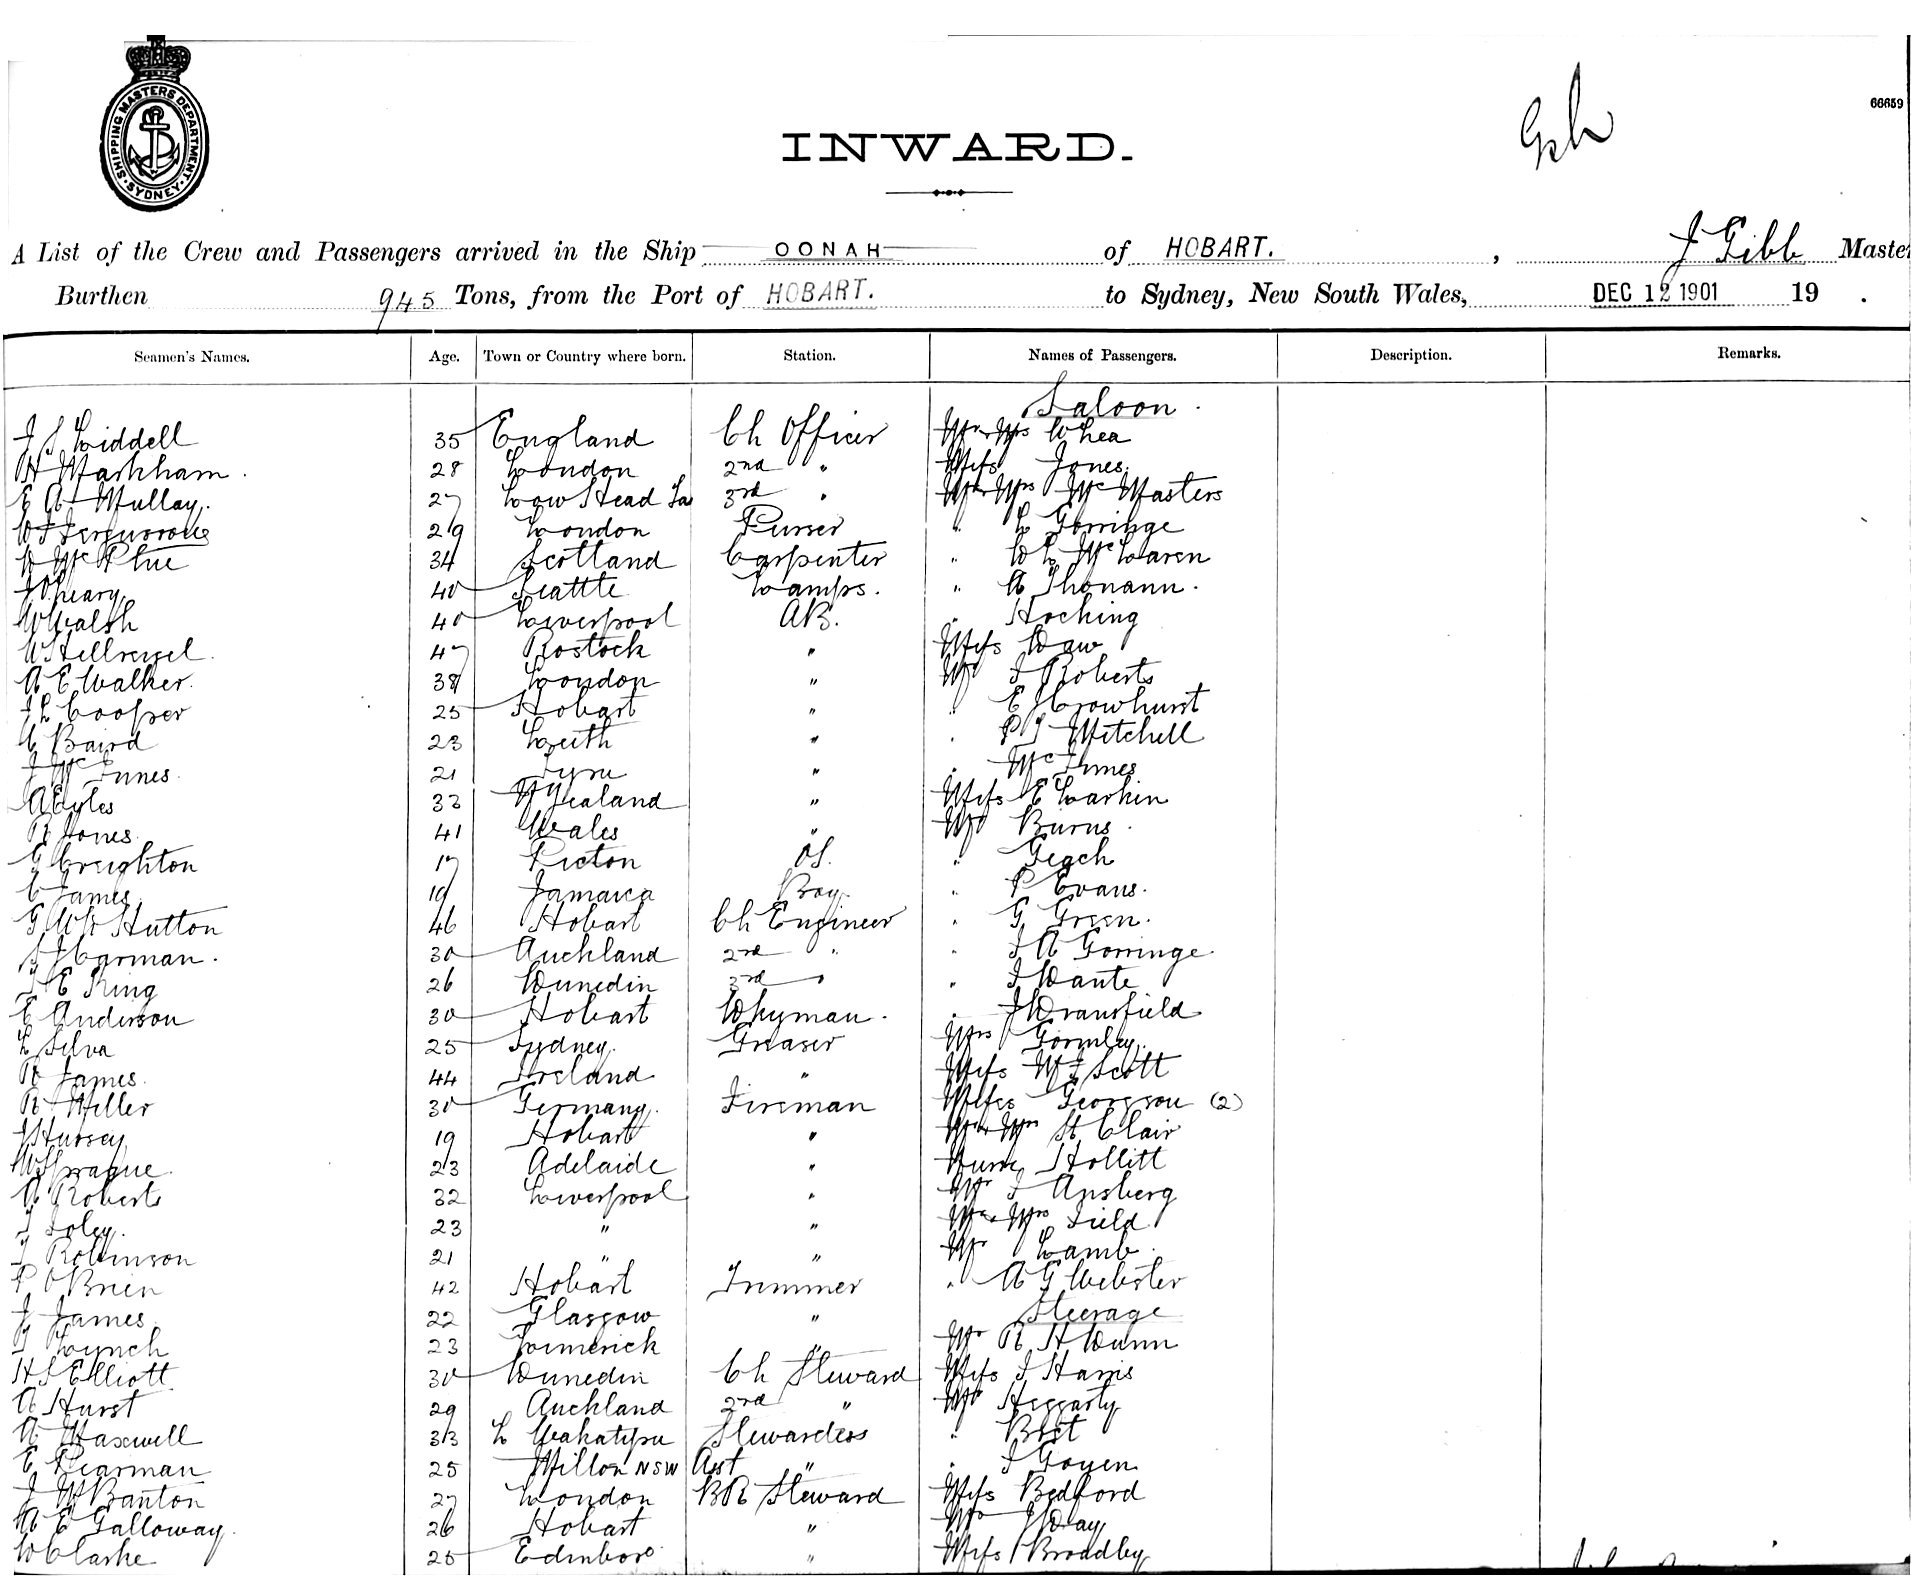 SHIPPING MASTERS DEPARTMENT. SYDNEY
66659
INWARD.
A List of the Crew and Passengers arrived in the Ship OONAH of HOBART. , J Gibb Master
Burthen 945 Tons, from the Port of HOBART. to Sydney, New South Wales, DEC 12 1901 19 .
Seamen's Names. Age. Town or Country where born. Station. Names of Passengers. Description. Remarks.
Saloon.
J S Liddell 35 England Ch Officer Mr Mrs Whea
H Markham. 28 London 2nd " Miss Jones
E A Mullay. 27 Low Head Tas 3rd " Mr Mrs McMasters
W J Fergusson 29 London Purser " L Gorringe
McPhie 34 Scotland Carpenter " W L McLaren
J Oheary 40 Seattle Lamps. " A Thonann.
W Walsh 40 Liverpool AB. " Hocking
W Hellreigel. 47 Rostock " Miss Daw
A E Walker. 38 London " Mr J Roberts
J L Cooper 25 Hobart " " E J Crowhurst
C Baird 23 Leith " " P J Mitchell
J McInnes 21 Tyne " " McInnes
A Eyles 33 N Zealand " Miss E Larkin
R Jones. 41 Wales " Mr Burns.
G Creighton 17 Picton OS. " Geach
C James. 19 Jamaica Boy. " P Evans.
G W Hutton 46 Hobart Ch Engineer " G Green.
S J Harman. 30 Auckland 2nd " " J A Gorringe.
J E King 26 Dunedin 3rd " " J Dante
E Anderson 30 Hobart Dkyman. " J Dransfield
L Silva 25 Sydney. Greaser Mrs Gormley.
R James. 44 Ireland " Miss M J Scott
R Miller 30 Germany. Fireman Misses Georgson (2)
J Hursey 19 Hobart " Mr Mrs St Clair
W Sprague. 23 Adelaide " Nurse Hollitt
A Roberts 32 Liverpool " Mr J Ansberg
J Foley. 23 " " Mr Mrs Field
J Robinson 21 " " Mr Lamb.
P OBrien 42 Hobart Trimmer " A G Webster
Steerage
J James. 22 Glasgow "
T Lynch 23 Limerick " Mr R H Dunn
H S Elliott 30 Dunedin Ch Steward Miss J Harris
A Hurst 29 Auckland 2nd " Mr Heggarty
A Maxwell 33 L Wakatipu Stewardess " Best
E Pearman 25 Milton NSW Asst " " J Goyen
J W Banton 27 London BR Steward Miss Bedford
A E Galloway. 26 Hobart " Mr J Day
W Clarke 25 Edinboro " Miss Broadby